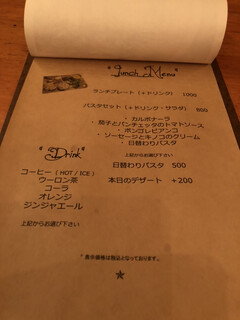 " Lunch Menu "
ランチプレート (+ドリンク) 1000
パスタセット (+ドリンク・サラダ) 800
・ カルボナーラ
・ 茄子とパンチェッタのトマトソース
・ ボンゴレビアンコ
・ ソーセージとキノコのクリーム
・ 日替わりパスタ
上記からお選び下さい
日替わりパスタ 500
本日のデザート +200
" Drink "
コーヒー ( HOT / ICE )
ウーロン茶
コーラ
オレンジ
ジンジャエール
上記からお選び下さい
* 表示価格は税込となっております。